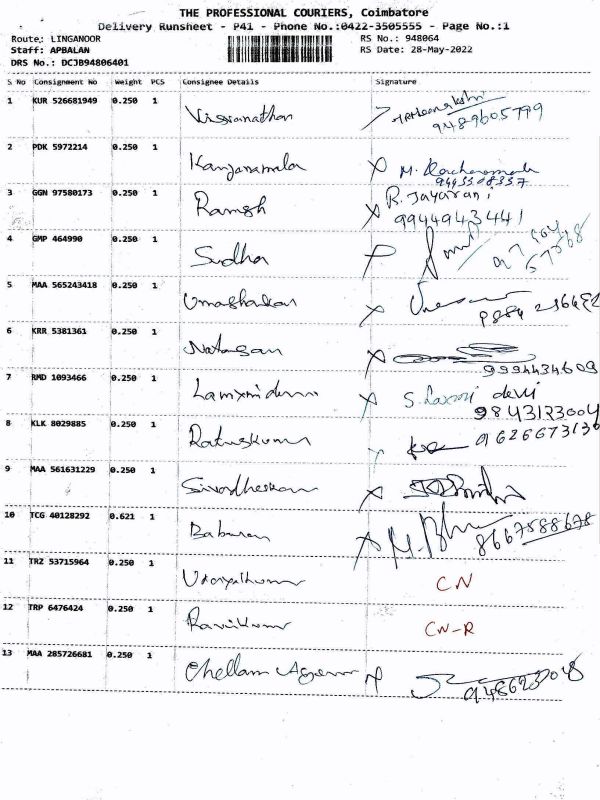 THE PROFESSIONAL COURIERS, Coimbatore
Delivery Runsheet - P41 - Phone No.:0422-3505555 - Page No.:1
Route: LINGANOOR RS No.: 948064
Staff: APBALAN RS Date: 28-May-2022
DRS No.: DCJB94806401
S No Consignment No Weight PCS Consignee Details Signature
1 KUR 526681949 0.250 1 Viswanathan
9489605799
2 PDK 5972214 0.250 1 Kanjanamala M.
3 GGN 97580173 0.250 1 Ramesh R. Jayarani
9944943441
4 GMP 464990 0.250 1 Sudha
5 MAA 565243418 0.250 1 Umashankar
6 KRR 5381361 0.250 1 Natasan
9994434609
7 RMD 1093466 0.250 1 S. Laxmi devi
9843123004
8 KLK 8029885 0.250 1 9626673136
9 MAA 561631229 0.250 1
10 TCG 40128292 0.621 1 Baburan
8667588678
11 TRZ 53715964 0.250 1 Udayakumar CN
12 TRP 6476424 0.250 1 Ravikumar CN-R
13 MAA 285726681 0.250 1 Chellam